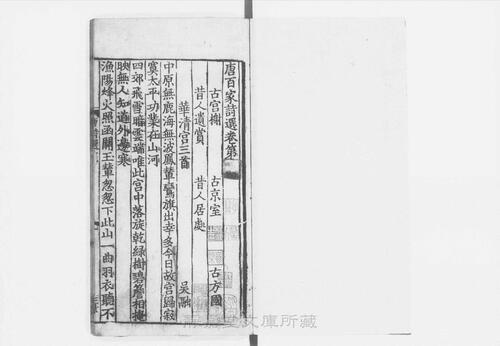 唐百家詩選卷第
古宮榭　古京室　古方國
昔人遺賞　昔人居處
華清宮三首　吳融
中原無鹿海無波鳳輦鸞旗出幸多今日故宮歸寂
寞太平功業在山河
四郊飛雪暗雲端唯此宮中落旋乾綠樹碧簷相掩
映無人知道外邊寒
漁陽烽火照函關玉輦怱怱下此山一曲羽衣聽不
文庫所藏